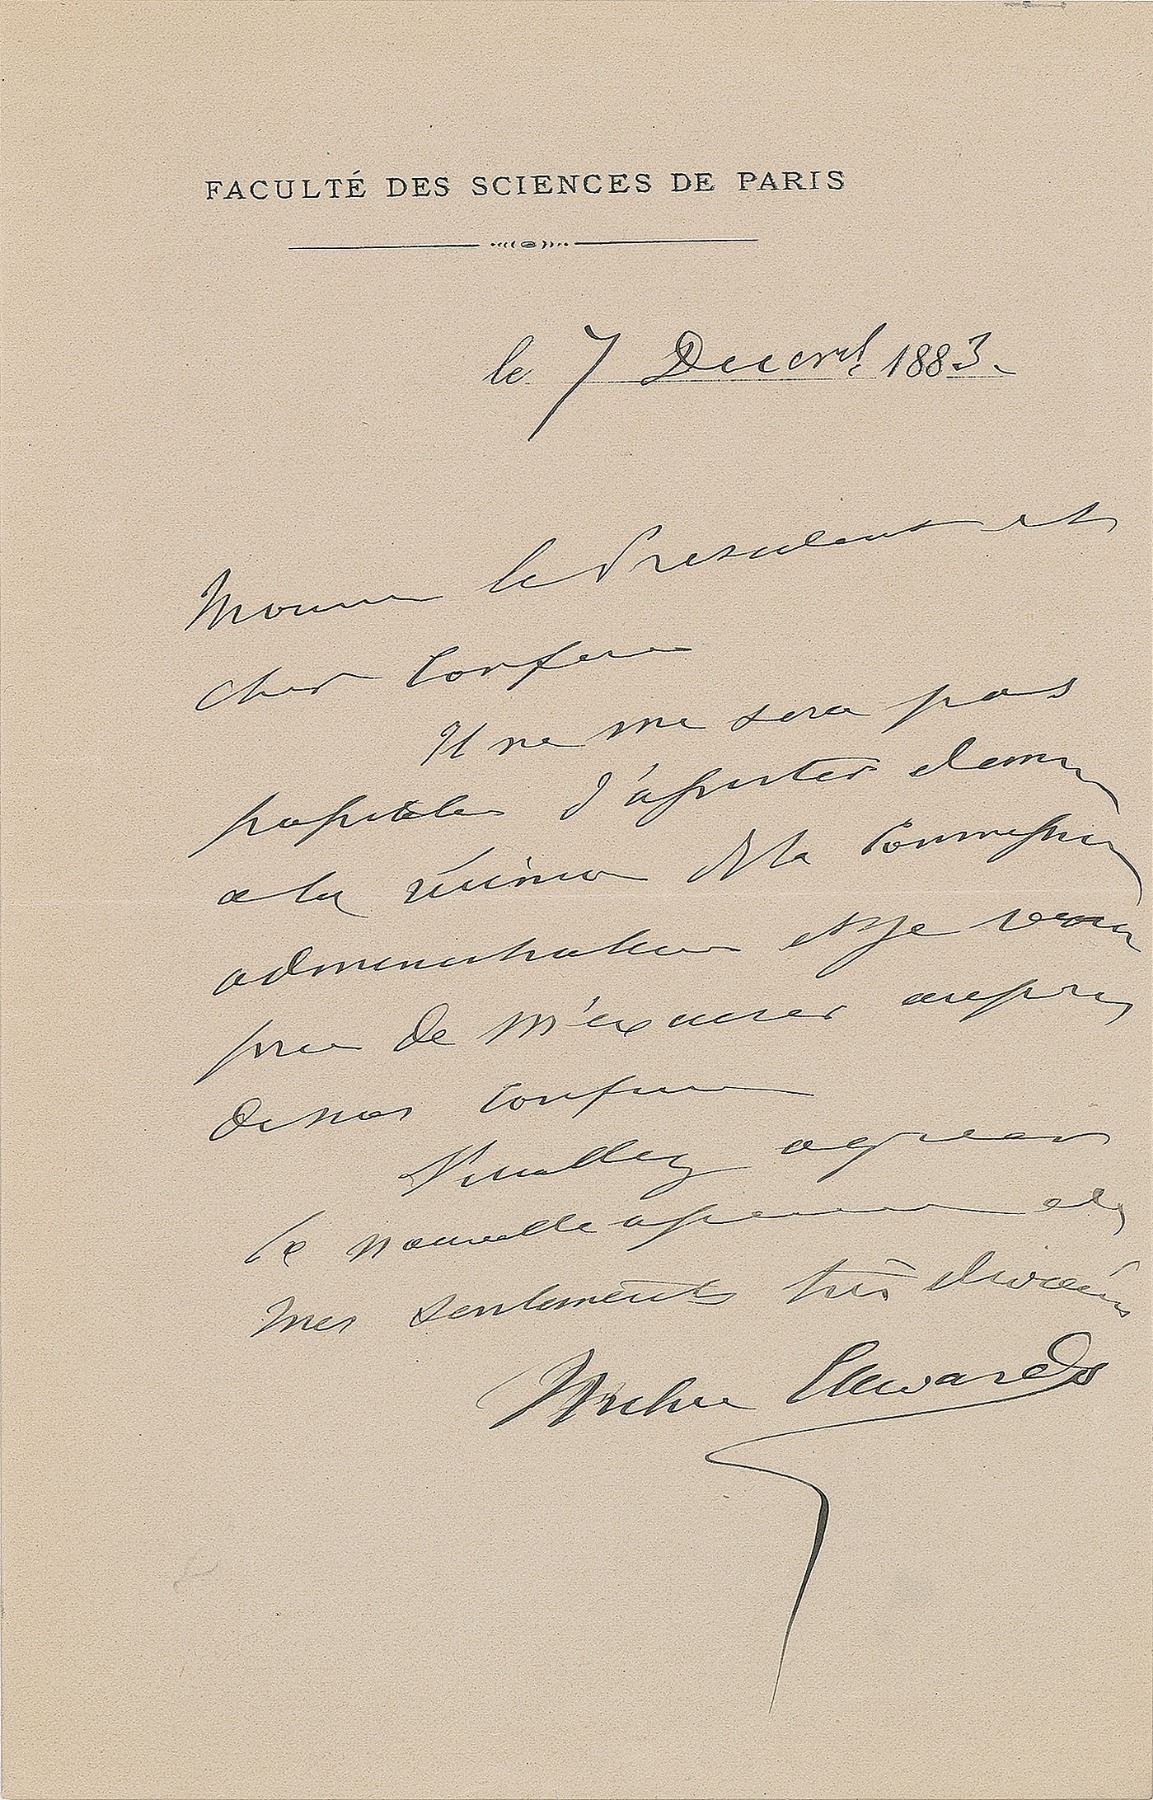 FACULTÉ DES SCIENCES DE PARIS
le 7 Decembre 1883.
Monsieur le President et
cher Confrere
Il ne me sera pas
possible d'assister demain
a la réunion de la Commission
administrative et je vous
prie de m'excuser aupres
de nos confreres
Veuillez agreer
la nouvelle assurance de
mes sentiments très devoués
Milne Edwards